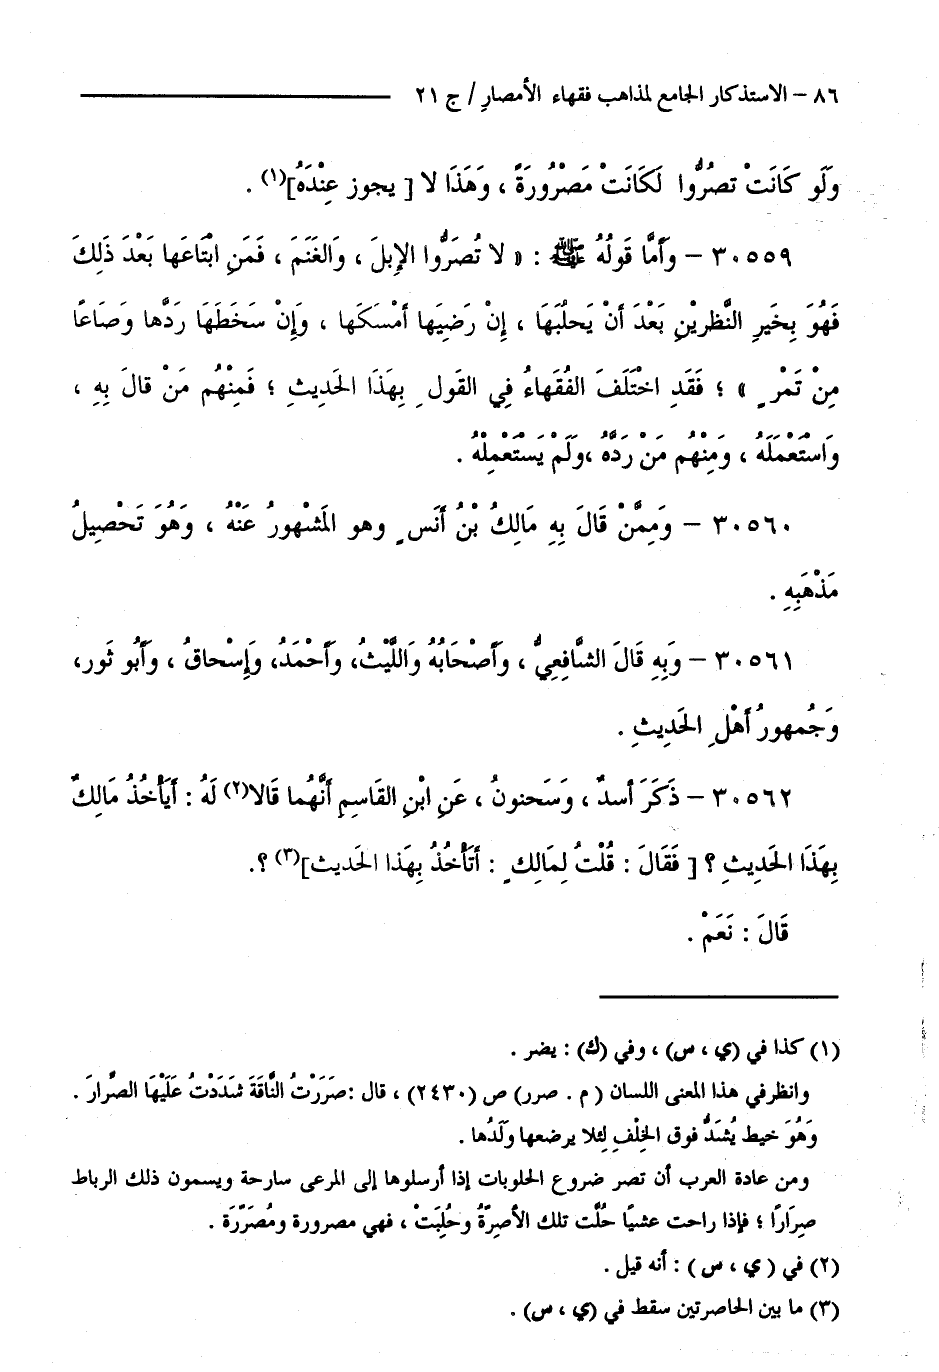 ٨٦ – الاستذكار الجامع لمذاهب فقهاء الأمصارِ / ج ٢١
وَلَو كَانَتْ تصُرُّوا لَكَانَتْ مَصْرُورَةً ، وَهَذَا لا [ يجوز عِنْدَهُ](١) .
٣٠٥٥٩ – وَأَمَّا قَولُهُ ﷺ : « لا تُصَرُّوا الإِبلَ ، وَالغَنَمَ ، فَمَنِ ابْتَاعَها بَعْدَ ذَلِكَ
فَهُوَ بِخَيرِ النَّظرَيْنِ بَعْدَ أَنْ يَحلُبَهَا ، إِنْ رَضِيَها أَمْسَكَها ، وَإِنْ سَخَطَهَا رَدَّها وَصَاعًا
مِنْ تَمْرٍ » ؛ فَقَدِ اخْتَلَفَ الفُقَهاءُ فِي القَولِ بِهَذَا الحَدِيثِ ؛ فَمِنْهُم مَنْ قالَ بِهِ ،
وَاسْتَعْمَلَهُ ، وَمِنْهُم مَنْ رَدَّهُ ،وَلَمْ يَسْتَعْمِلْهُ .
٣٠٥٦٠ – وَمِمَّنْ قَالَ بِهِ مَالِكُ بْنُ أَنَسٍ وهو المَشْهورُ عَنْهُ ، وَهُوَ تَحْصِيلُ
مَذْهَبِهِ .
٣٠٥٦١ – وَبِهِ قَالَ الشَّافِعِيُّ ، وَأَصْحَابُهُ وَاللَّيْثُ، وَأَحْمَدُ، وَإِسْحاقُ ، وَأَبُو ثَور،
وَجُمهورُ أَهْلِ الحَدِيثِ .
٣٠٥٦٢ – ذَكَرَ أسدٌ ، وَسَحنونُ ، عَنِ ابْنِ القَاسِمِ أَنَّهُما قَالا(٢) لَهُ : أَيَأْخُذُ مَالِكٌ
بِهَذَا الحَدِيثِ ؟ [ فَقَالَ : قُلْتُ لِمَالِكٍ : أَتَأْخُذُ بِهَذا الحَديث](٣) ؟.
قَالَ : نَعَمْ .
(١) كذا في (ي ، س) ، وفي (ك) : يضر .
وانظرفي هذا المعنى اللسان ( م . صرر) ص (٢٤٣٠) ، قال :صَرَرْتُ النَّاقَةَ شَدَدْتُ عَلَيْهَا الصِّرارَ .
وَهُوَ خيط يُشَدُّ فوق الخِلْفِ لِئلا يرضعها وَلَدُها .
ومن عادة العرب أن تصر ضروع الحلوبات إذا أرسلوها إلى المرعى سارحة ويسمون ذلك الرباط
صِرَارًا ؛ فإذا راحت عشيًا حُلَّت تلك الأصِرَّةُ وحُلِبَتْ ، فهي مصرورة ومُصَرَّرَة .
(٢) في ( ي ، س ) : أنه قيل .
(٣) ما بين الحاصرتين سقط في (ي ، س) .